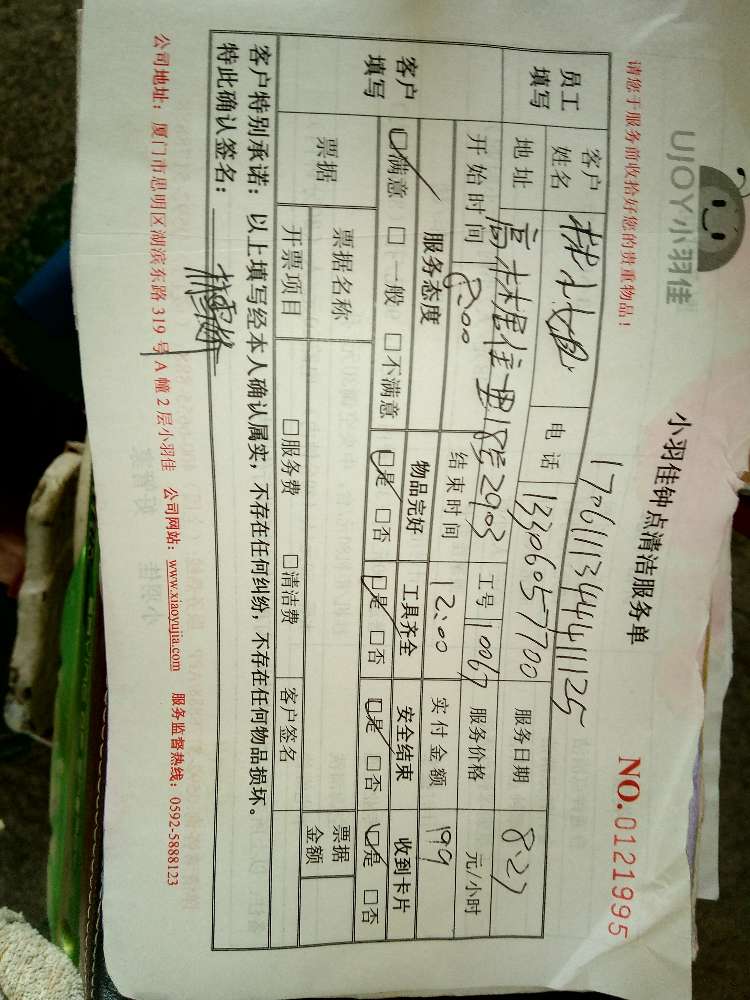 UJOY小羽佳
小羽佳钟点清洁服务单
NO.0121995
请您于服务前收拾好您的贵重物品！
1706111344441125
员工填写
客户姓名 林小姐 电话 13306057700 服务日期 8.27
地址 高林居住里18号2903 工号 10067 服务价格 元/小时
开始时间 8:00 结束时间 12:00 实付金额 199
客户填写
服务态度 物品完好 工具齐全 安全结束 收到卡片
☑满意 □一般 □不满意 ☑是 □否 ☑是 □否 ☑是 □否 ☑是 □否
票据 票据名称 票据金额
开票项目 □服务费 □清洁费 客户签名
客户特别承诺：以上填写经本人确认属实，不存在任何纠纷，不存在任何物品损坏。
特此确认签名：
公司地址：厦门市思明区湖滨东路319号A幢2层小羽佳 公司网站：www.xiaoyujia.com 服务监督热线：0592-5888123